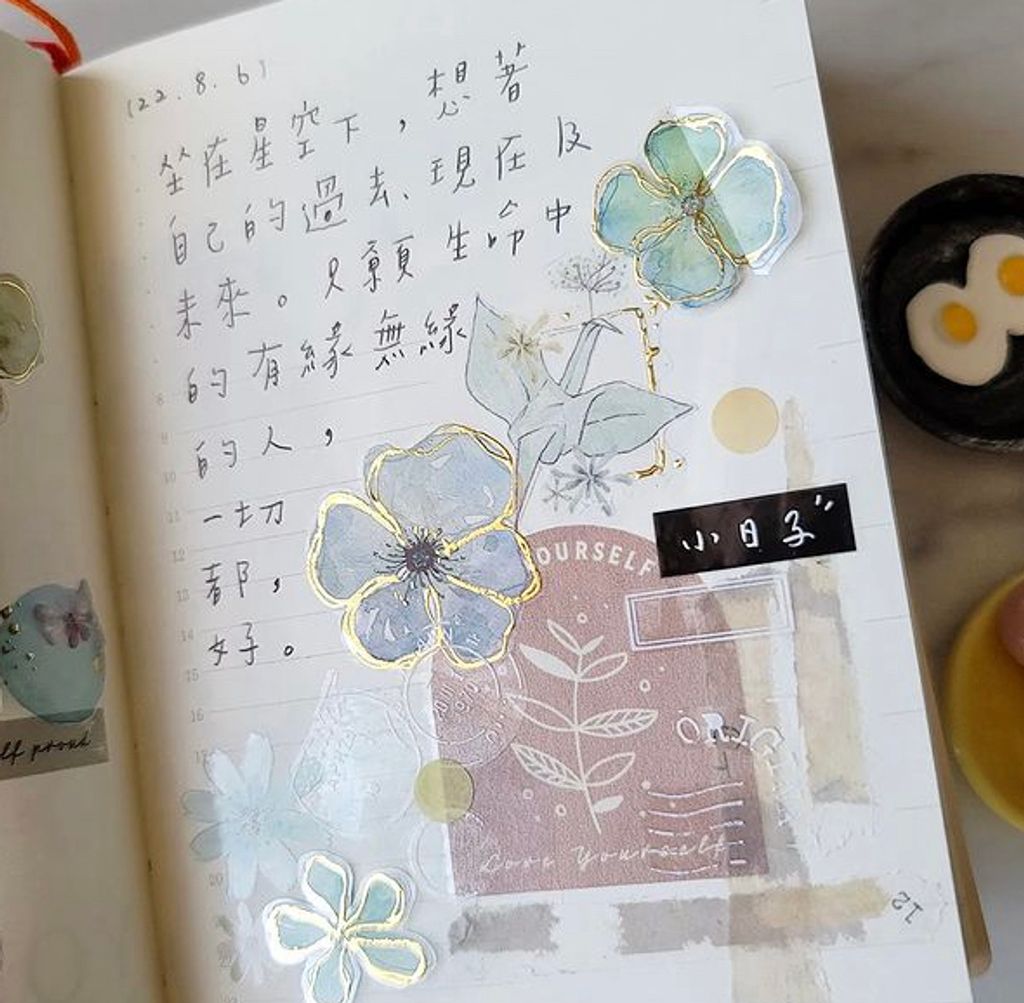 (22.8.6)
坐在星空下，想著
自己的過去、現在及
未來。只願生命中
的有緣無緣
的人，
一切
都，
好。
小日子"
OURSELF
Love Yourself
ORIG
lf proud
8
9
10
11
12
13
14
15
16
17
20
12